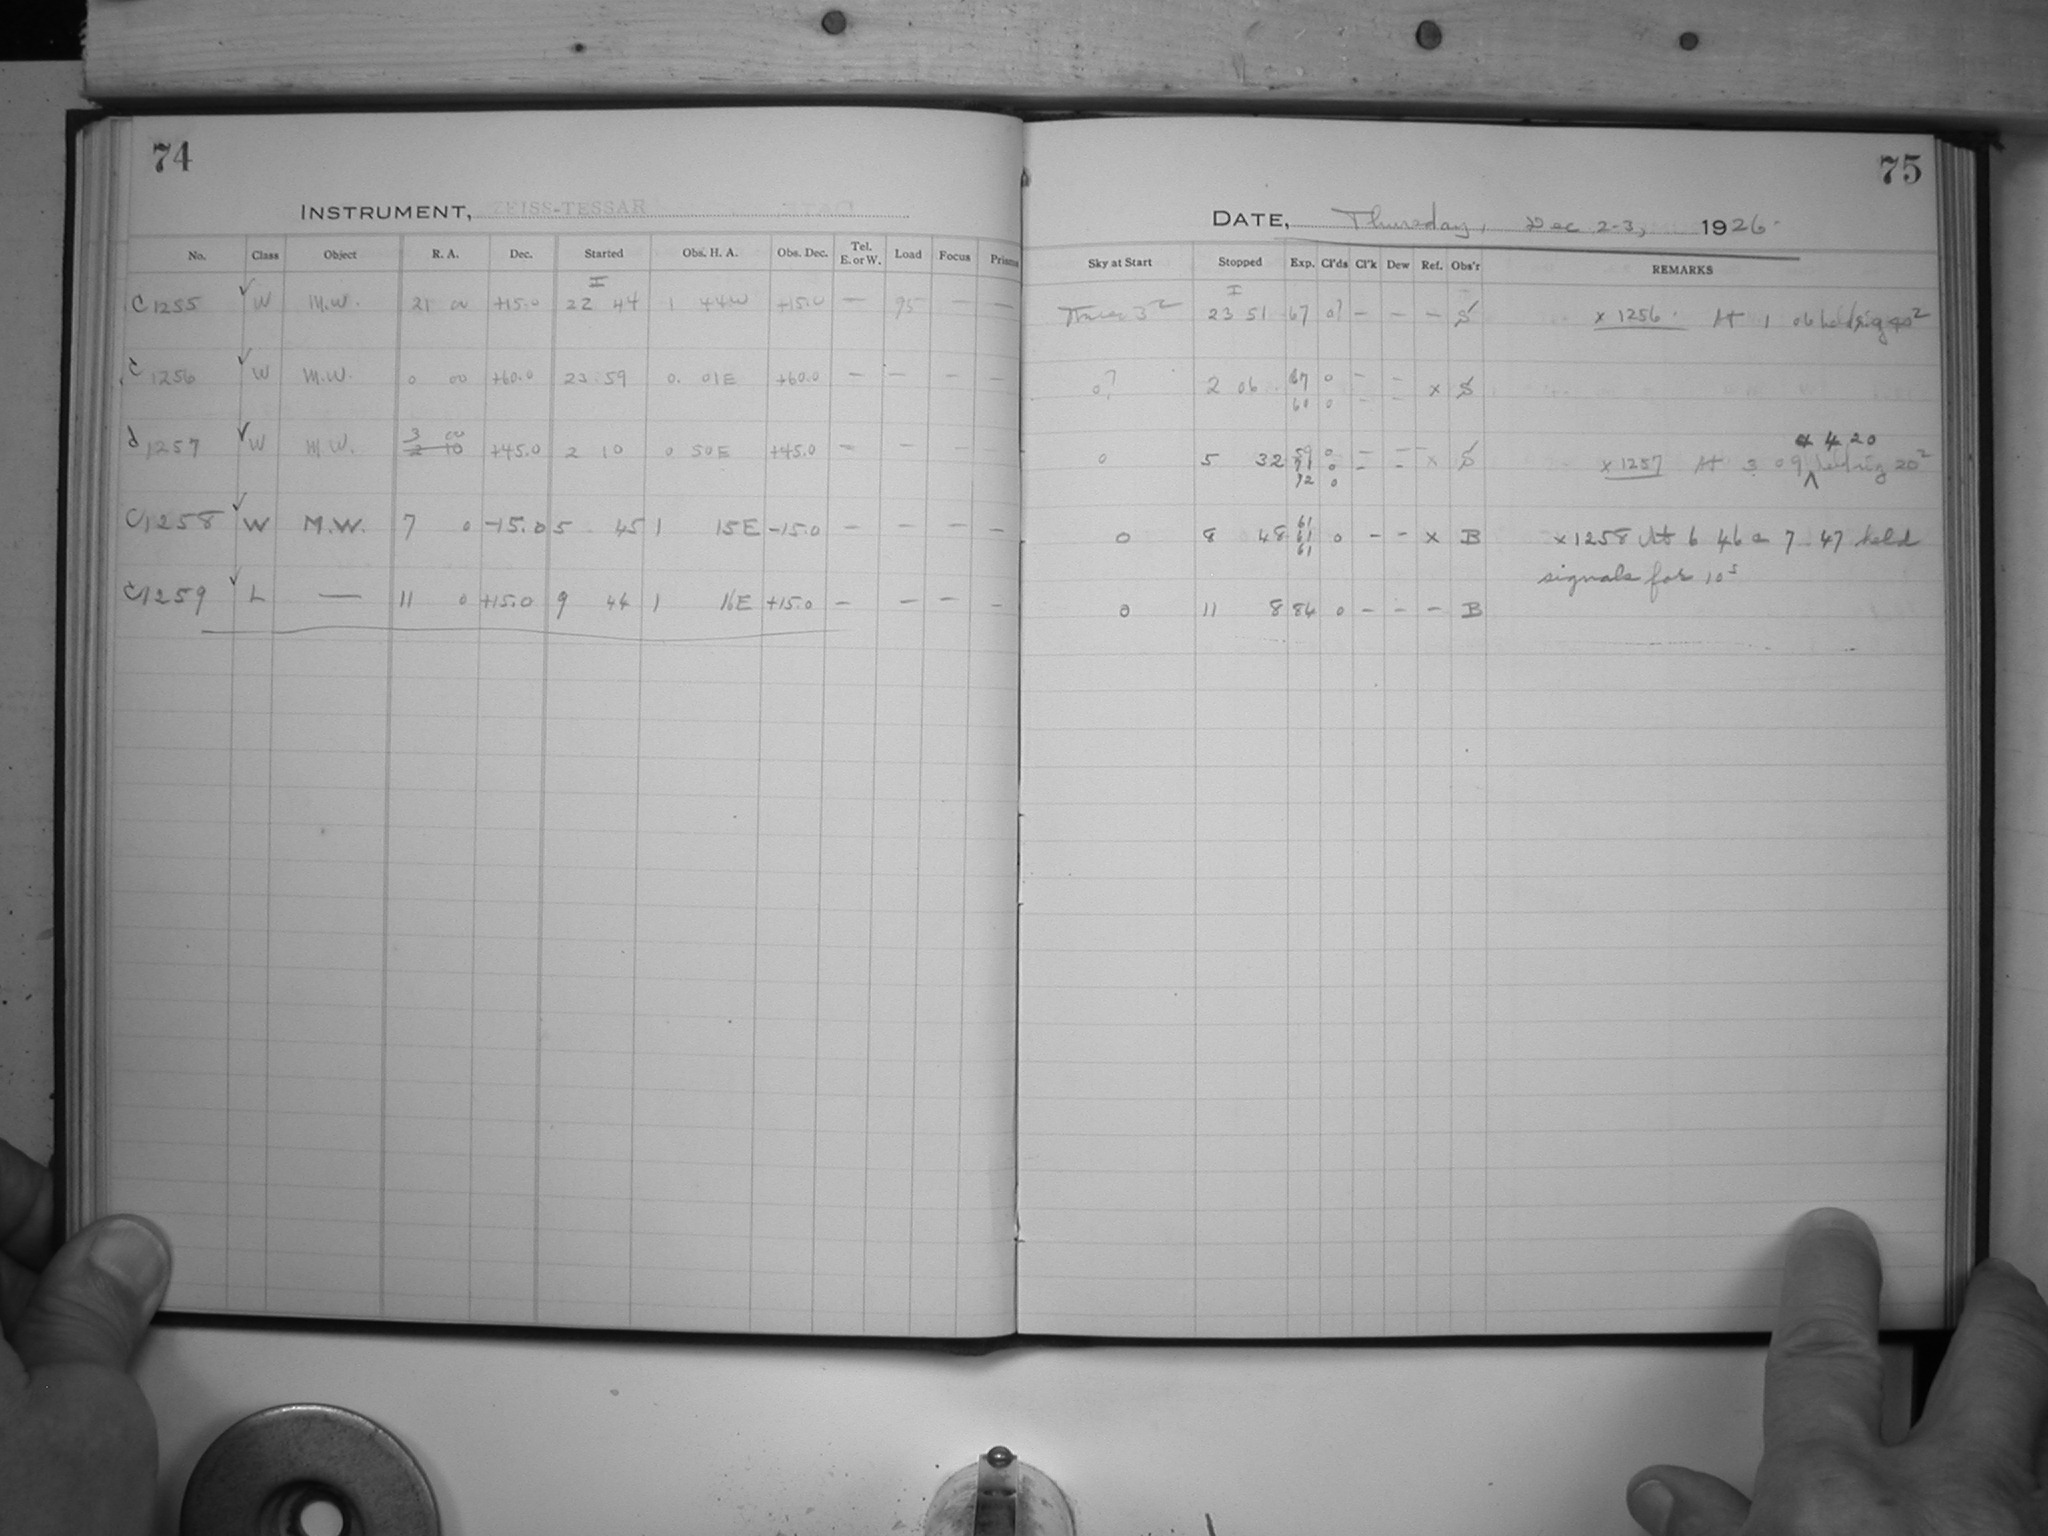 74
INSTRUMENT, ZEISS-TESSAR
No. Class Object R. A. Dec. Started Obs. H. A. Obs. Dec. Tel. E. or W. Load Focus Prisms
I
C1255 ✓ W M.W. 21 00 +15.0 22 44 1 44W +15.0 — 95 — —
C1256 ✓ W M.W. 0 00 +60.0 23 59 0 01E +60.0 — — — —
3 00
d1257 ✓ W M.W. 2 10 +45.0 2 10 0 50E +45.0 — — — —
C1258 ✓ W M.W. 7 0 -15.0 5 45 1 15E -15.0 — — — —
C1259 ✓ L — 11 0 +15.0 9 44 1 16E +15.0 — — — —
75
DATE, Thursday, Dec 2-3, 1926.
Sky at Start Stopped Exp. Cl'ds Cl'k Dew Ref. Obs'r REMARKS
I
3 23 51 67 0? — — — S x 1256 At 1 06
0? 2 06 67 0 — — x S
60 0 — —
4 20
0 5 32 59 0 — — x S x 1257 At 3 09 20
71 0 — —
92 0
0 8 48 61 0 — — x B x 1258 At 6 46 7 47 held
61
61
signals for 10s
0 11 8 84 0 — — — B